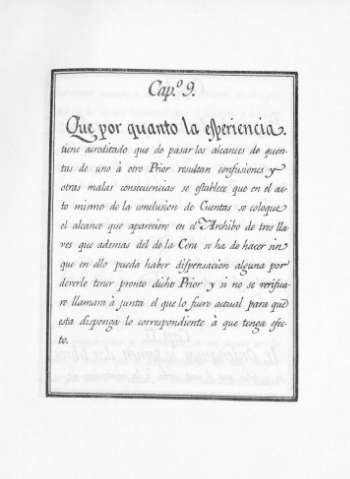 Cap.º 9.
Que por quanto la esperiencia
tiene acreditado que de pasar los alcances de quen-
tas de uno à otro Prior resultan confusiones y
otras malas consecuencias se establece que en el ac-
to mismo de la conclusion de Cuentas se coloque
el alcance que apareciere en el Archibo de tres lla-
ves que ademas del de la Cera se ha de hacer sin
que en ello pueda haber dispensacion alguna por
deverle tener pronto dicho Prior y si no se verifica-
re llamara à junta el que lo fuere actual para que
esta disponga lo correspondiente à que tenga efec-
to.